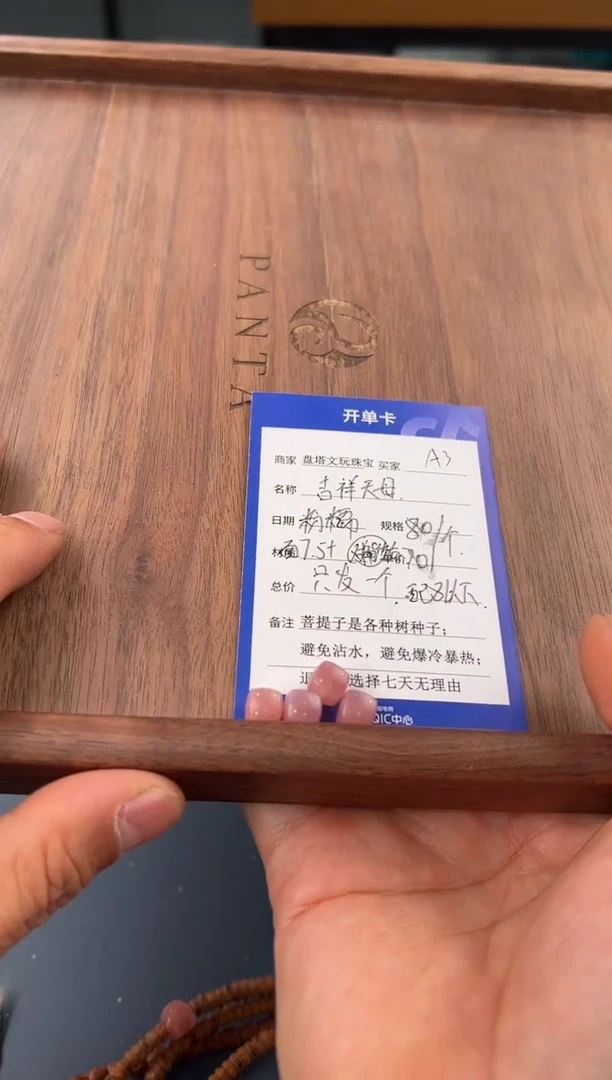 PANTA
开单卡
商家 盘塔文玩珠宝 买家 A3
名称 吉祥天母
日期 规格 80/个
7.5+
总价 只发一个
备注 菩提子是各种树种子;
避免沾水,避免爆冷暴热;
选择七天无理由
QIC中心